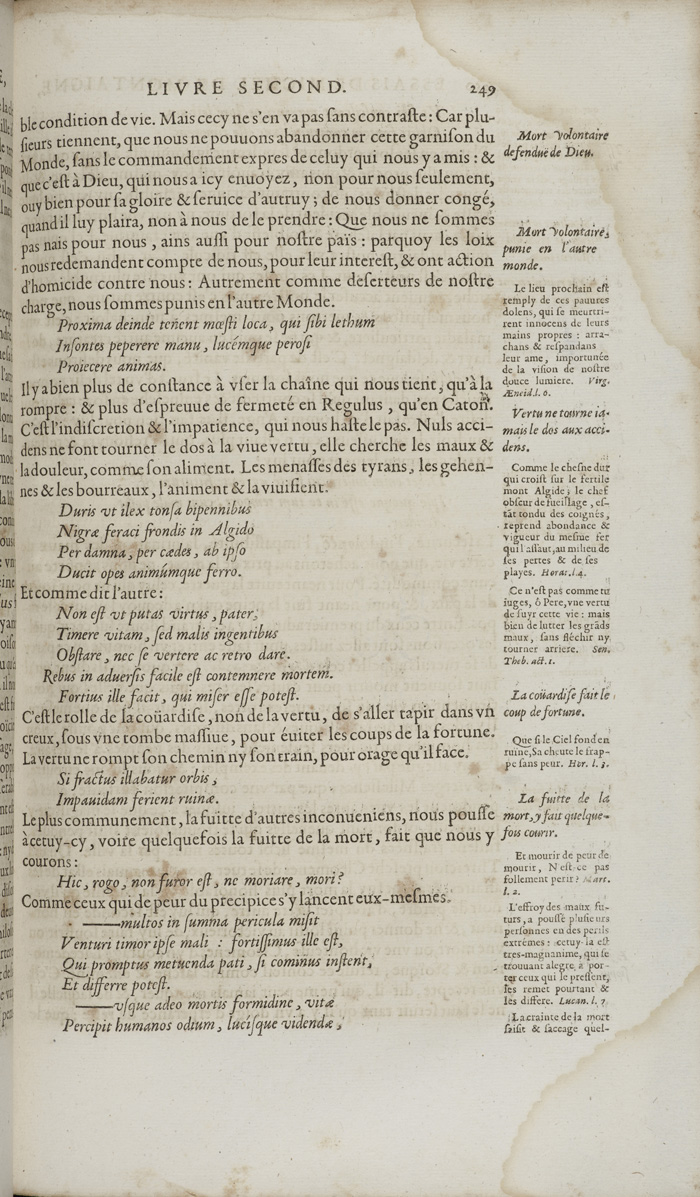 LIVRE SECOND. 249
ble condition de vie. Mais cecy ne s'en va pas ſans contraſte : Car plu-
ſieurs tiennent, que nous ne pouuons abandonner cette garniſon du
Monde, ſans le commandement expres de celuy qui nous y a mis : &
que c'eſt à Dieu, qui nous a icy enuoyez, non pour nous ſeulement,
ouy bien pour ſa gloire & ſeruice d'autruy ; de nous donner congé,
quand il luy plaira, non à nous de le prendre : Que nous ne ſommes
pas nais pour nous, ains auſſi pour noſtre païs : parquoy les loix
nous redemandent compte de nous, pour leur intereſt, & ont action
d'homicide contre nous : Autrement comme deſerteurs de noſtre
charge, nous ſommes punis en l'autre Monde.
Proxima deinde tenent mœſti loca, qui ſibi lethum
Inſontes peperere manu, lucémque peroſi
Proiecere animas.
Il y a bien plus de conſtance à vſer la chaîne qui nous tient, qu'à la
rompre : & plus d'eſpreuue de fermeté en Regulus, qu'en Caton.
C'eſt l'indiſcretion & l'impatience, qui nous haſte le pas. Nuls acci-
dens ne font tourner le dos à la viue vertu, elle cherche les maux &
la douleur, comme ſon aliment. Les menaſſes des tyrans, les gehen-
nes & les bourreaux, l'animent & la viuifient.
Duris vt ilex tonſa bipennibus
Nigræ feraci frondis in Algido
Per damna, per cædes, ab ipſo
Ducit opes animúmque ferro.
Et comme dit l'autre :
Non eſt vt putas virtus, pater,
Timere vitam, ſed malis ingentibus
Obſtare, nec ſe vertere ac retro dare.
Rebus in aduerſis facile eſt contemnere mortem.
Fortius ille facit, qui miſer eſſe poteſt.
C'eſt le rolle de la coüardiſe, non de la vertu, de s'aller tapir dans vn
creux, ſous vne tombe maſſiue, pour éuiter les coups de la fortune.
La vertu ne rompt ſon chemin ny ſon train, pour orage qu'il face.
Si fractus illabatur orbis,
Impauidam ferient ruinæ.
Le plus communement, la fuitte d'autres inconueniens, nous pouſſe
à cetuy-cy, voire quelquefois la fuitte de la mort, fait que nous y
courons :
Hic, rogo, non furor eſt, ne moriare, mori ?
Comme ceux qui de peur du precipice s'y lancent eux-meſmes.
——multos in ſumma pericula miſit
Venturi timor ipſe mali : fortiſſimus ille eſt,
Qui promptus metuenda pati, ſi cominus inſtent,
Et differre poteſt.
——vſque adeo mortis formidine, vitæ
Percipit humanos odium, lucíſque videndæ,
Mort volontaire
defenduë de Dieu.
Mort volontaire,
punie en l'autre
monde.
Le lieu prochain eſt
remply de ces pauures
dolens, qui ſe meurtri-
rent innocens de leurs
mains propres : arra-
chans & reſpandans
leur ame, importunée
de la viſion de noſtre
douce lumiere. Virg.
Æneid. l. 6.
Vertu ne tourne ia-
mais le dos aux acci-
dens.
Comme le cheſne dur
qui croiſt ſur le fertile
mont Algide ; le chef
obſcur de fueillage, eſ-
tāt tondu des coignés,
reprend abondance &
vigueur du meſme fer
qui l'aſſaut, au milieu de
ſes pertes & de ſes
playes. Horat. l. 4.
Ce n'eſt pas comme tu
iuges, ô Pere, vne vertu
de fuyr cette vie : mais
bien de lutter les grāds
maux, ſans fléchir ny
tourner arriere. Sen.
Theb. act. 1.
La coüardiſe fait le
coup de fortune.
Que ſi le Ciel fond en
ruine, Sa cheute le frap-
pe ſans peur. Hor. l. 3.
La fuitte de la
mort, y fait quelque-
fois courir.
Et mourir de peur de
mourir, N'eſt-ce pas
follement perir ? Mart.
l. 2.
L'effroy des maux fu-
turs, a pouſſé pluſieurs
perſonnes en des perils
extrémes : cetuy-là eſt
tres-magnanime, qui ſe
trouuant alegre, à por-
ter ceux qui le preſſent,
ſes remet pourtant &
les differe. Lucan. l. 7.
La crainte de la mort
ſaiſit & ſaccage quel-